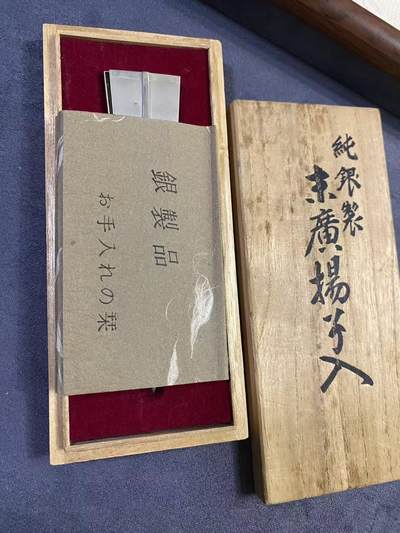 銀製品
お手入れの栞
純銀製
末廣揚子入